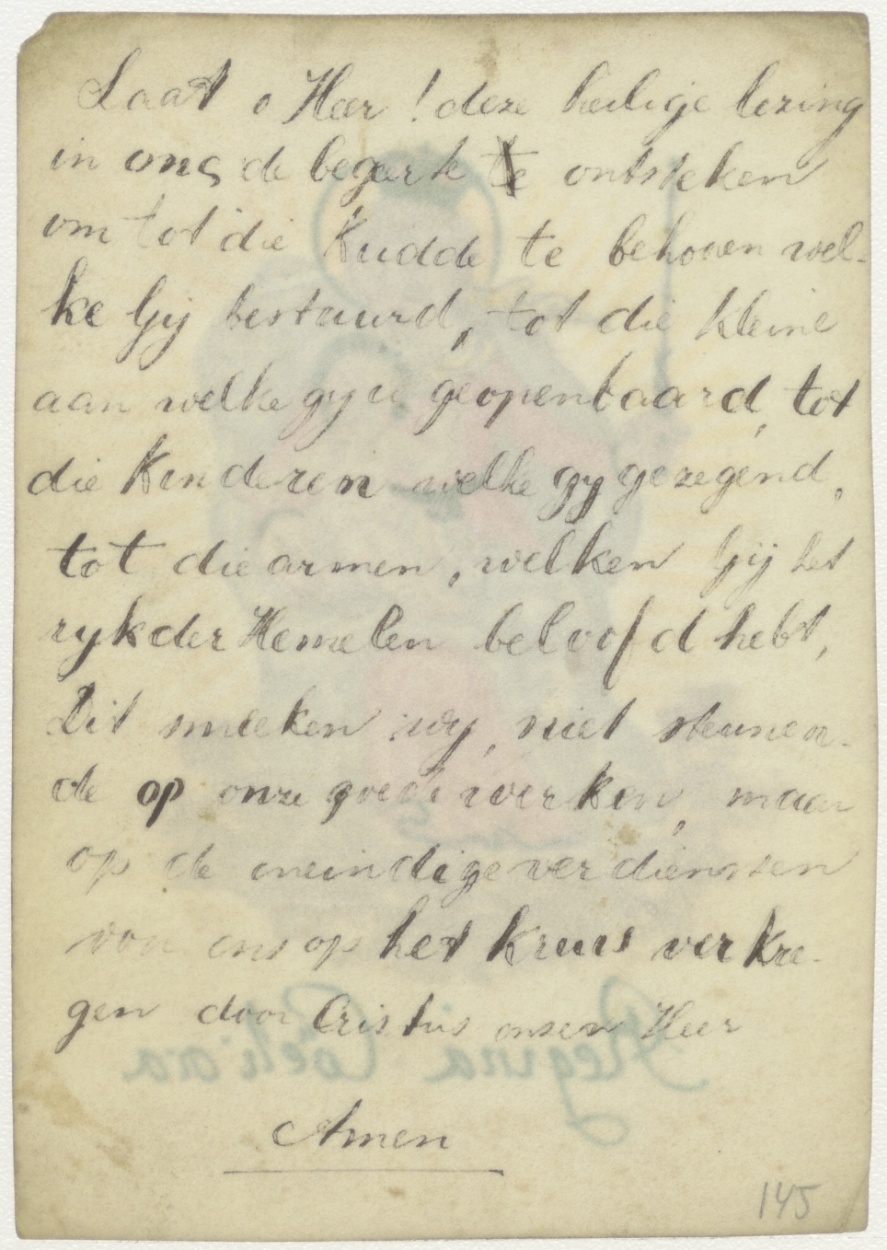 Laat o Heer! deze heilige lezing
in ons de begeerte te ontsteken
om tot die kudde te behooren wel-
ke Gij bestuurd, tot die kleine
aan welke gy u geopenbaard, tot
die Kinderen welke gy gezegend,
tot die armen, welken Gij het
ryk der Hemelen beloofd hebt,
Dit smeeken wy, niet steunen-
de op onze goede werken, maar
op de oneindige verdiensten
voor ons op het kruis verkre-
gen door Cristus onsen Heer
Regina Coeli ora
Amen
145